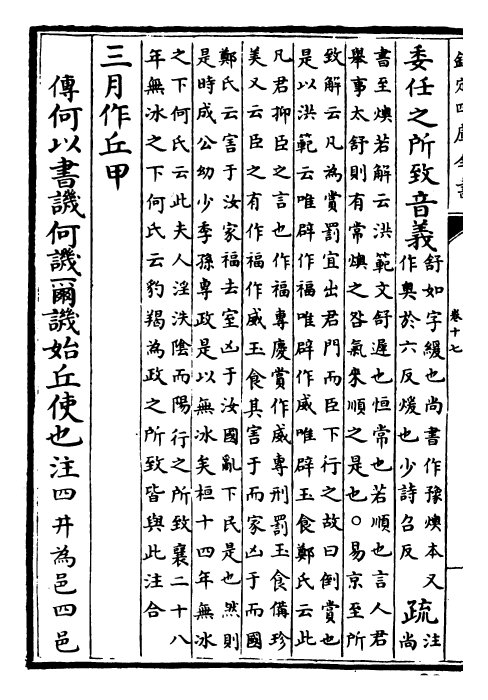 欽定四庫全書
卷十七
委任之所致音義
舒如字緩也尚書作豫燠本又
作奥於六反煖也少詩召反
疏
注
尚
書至燠若解云洪範文舒遲也恒常也若順也言人君
舉事太舒則有常燠之咎氣來順之是也○易京至所
致解云凡為賞罰宜出君門而臣下行之故曰倒賞也
是以洪範云唯辟作福唯辟作威唯辟玉食鄭氏云此
凡君抑臣之言也作福專慶賞作威專刑罰玉食備珍
美又云臣之有作福作威玉食其害于而家凶于而國
鄭氏云害于汝家福去室凶于汝國亂下民是也然則
是時成公幼少季孫專政是以無冰矣桓十四年無冰
之下何氏云此夫人淫泆陰而陽行之所致襄二十八
年無冰之下何氏云豹羯為政之所致皆與此注合
三月作丘甲
傳何以書譏何譏爾譏始丘使也注四井為邑四邑